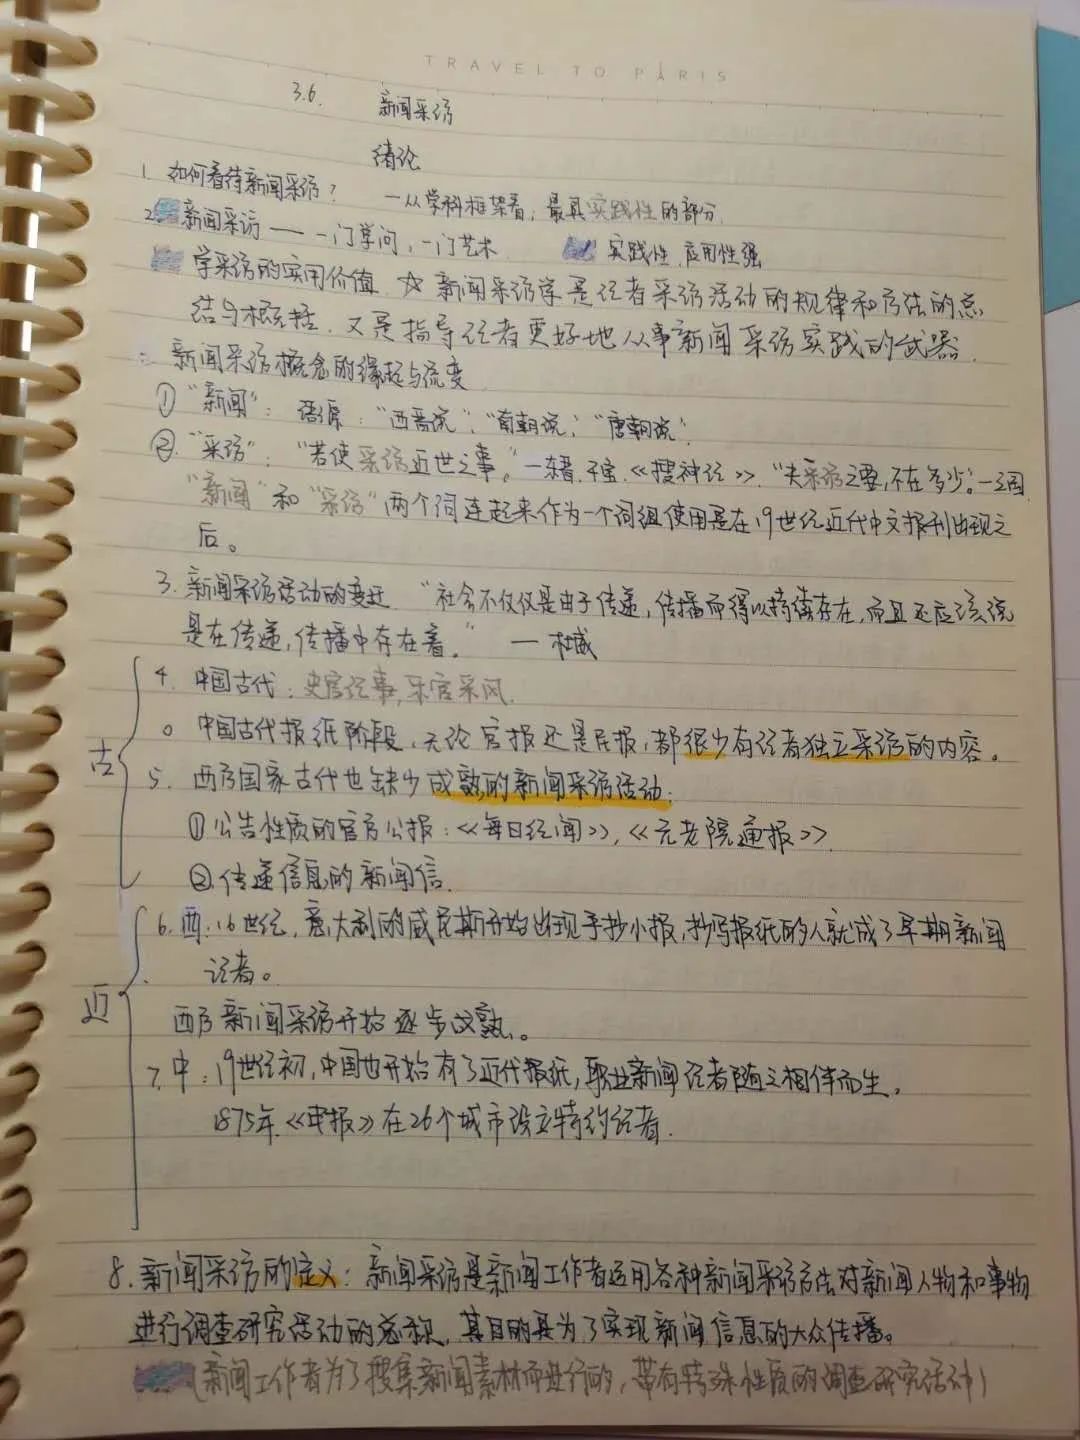 TRAVEL TO PARIS
3.6. 新闻采访
绪论
1. 如何看待新闻采访? —从学科框架看,最具实践性的部分.
2. 新闻采访——一门学问,一门艺术 实践性,应用性强
学采访的实用价值 ☆ 新闻采访学是记者采访活动的规律和方法的总
结与概括,又是指导记者更好地从事新闻采访实践的武器.
新闻采访概念的缘起与流变
① “新闻”: 语源:“西晋说”、“南朝说”、“唐朝说”.
②. “采访”: “若使采访近世之事。”—东晋.干宝.《搜神记》. “夫采访之要,不在多少。”—三国
“新闻”和“采访”两个词连起来作为一个词组使用是在19世纪近代中文报刊出现之
后。
3. 新闻采访活动的变迁 “社会不仅仅是由于传递,传播而得以持续存在,而且还应该说
是在传递,传播中存在着。” —杜威
古
4. 中国古代:史官记事,乐官采风.
中国古代报纸阶段,无论官报还是民报,都很少有记者独立采访的内容。
5. 西方国家古代也缺少成熟的新闻采访活动:
①公告性质的官方公报:《每日纪闻》,《元老院通报》.
②.传递信息的新闻信.
近
6. 西:16世纪,意大利的威尼斯开始出现手抄小报,抄写报纸的人就成了早期新闻
记者。
西方新闻采访开始逐步成熟。
7. 中:19世纪初,中国也开始有了近代报纸,职业新闻记者随之相伴而生。
1875年.《申报》在26个城市设立特约记者.
8. 新闻采访的定义:新闻采访是新闻工作者运用各种新闻采访方法对新闻人物和事物
进行调查研究活动的总称.其目的是为了实现新闻信息的大众传播。
(新闻工作者为了搜集新闻素材而进行的,带有特殊性质的调查研究活动)